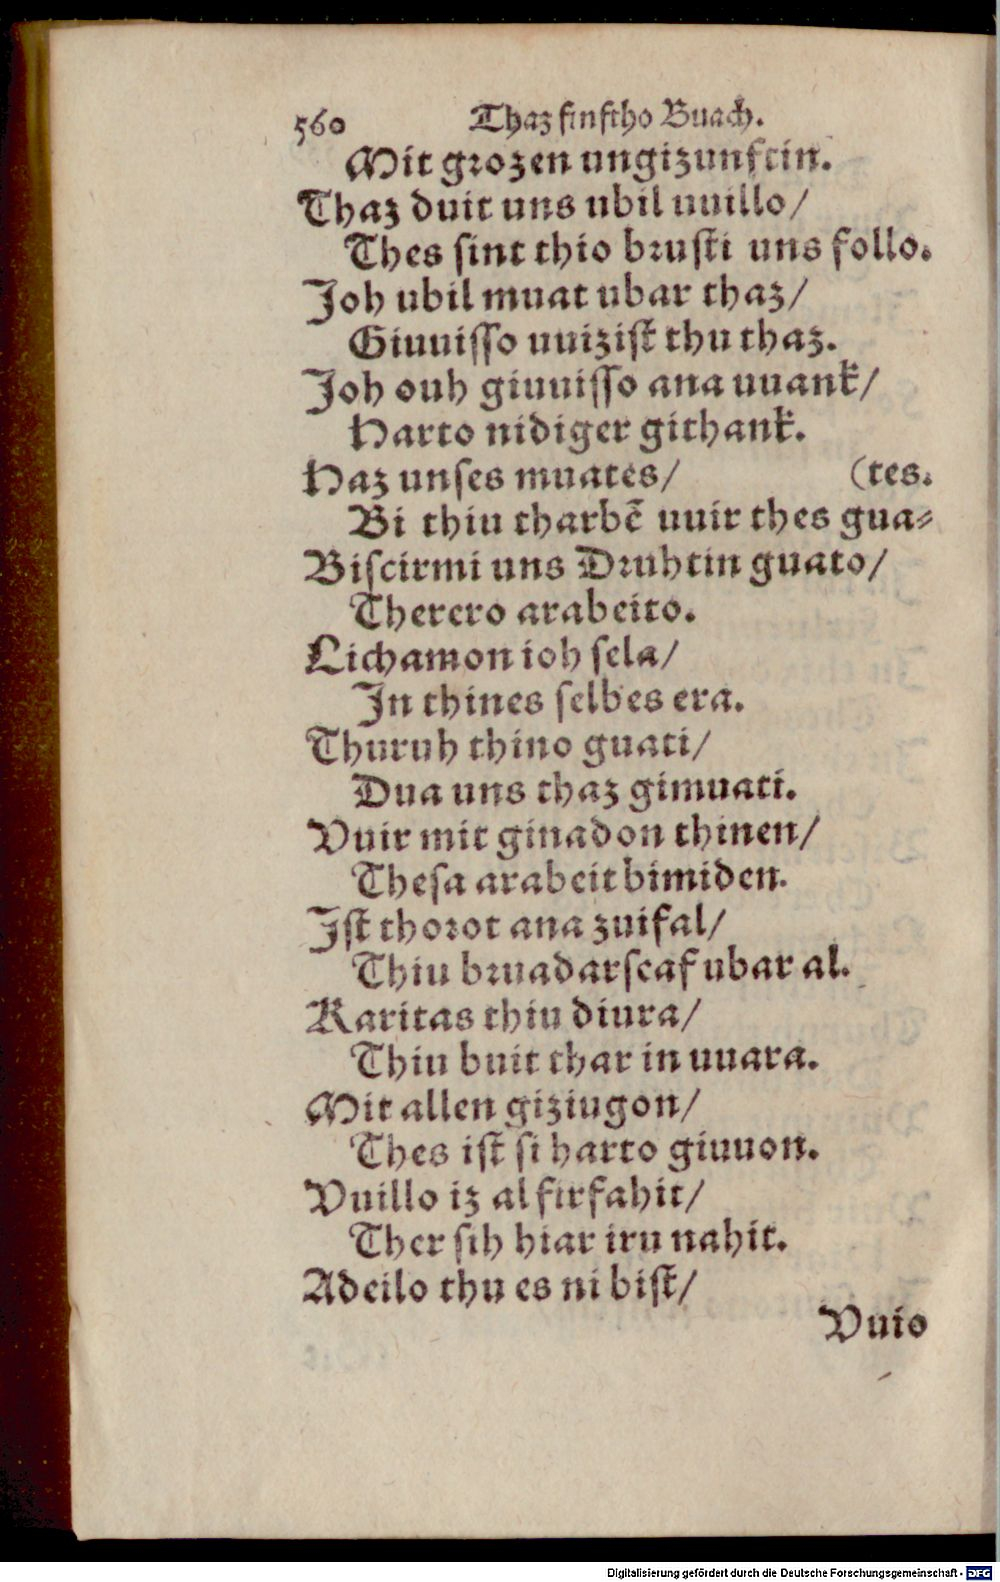 560 Thaz finftho Buach.
Mit grozen ungizunftin.
Thaz duit uns ubil uuillo/
Thes sint thio brusti uns follo.
Joh ubil muat ubar thaz/
Giuuisso uuizist thu thaz.
Joh ouh giuuisso ana uuank/
Harto nidiger githank.
Haz unses muates/ (tes.
Bi thiu tharbē uuir thes gua⸗
Biscirmi uns Druhtin guato/
Therero arabeito.
Lichamon ioh sela/
In thines selbes era.
Thuruh thino guati/
Dua uns thaz gimuati.
Vuir mit ginadon thinen/
Thesa arabeit bimiden.
Ist thorot ana zuifal/
Thiu bruadarscaf ubar al.
Karitas thiu diura/
Thiu buit thar in uuara.
Mit allen giziugon/
Thes ist si harto giuuon.
Vuillo iz al firfahit/
Ther sih hiar iru nahit.
Adeilo thu es ni bist/
Vuio
Digitalisierung gefördert durch die Deutsche Forschungsgemeinschaft - DFG